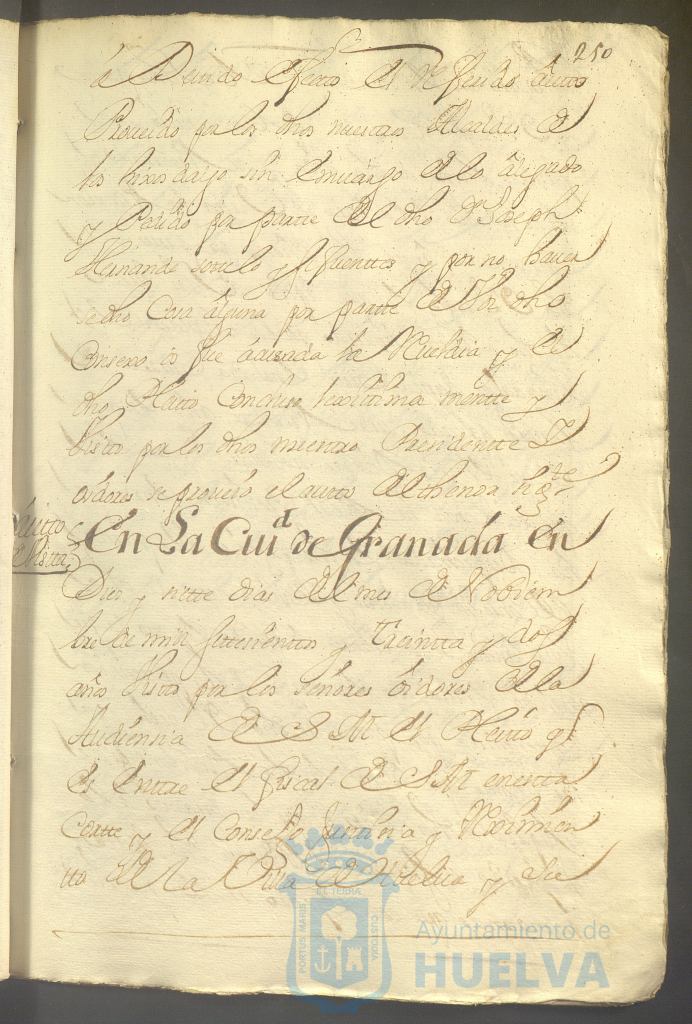 250
á Devido efecto el Referido auto
Proveido por los dhos nuestros Alcaldes de
los hixos dalgo sin embargo de lo alegado
y Pedido por parte del dho D Joseph
Hernando sotelo y sifuentes y por no haver
se dho Cosa alguna por parte de Vos dho
Consexo os fue acusada la Reveldia y el
dho Pleito Concluso lexitima mentte y
Visto por los dhos nuestro Presidentte Y
oidores se proveio el auto del thenor sigte
Autto de Vista
En La Ciud de Granada en
Diez y siette dias del mes de Nobiem
bre de mill settecientos y treintta y dos
años Visto por los señores oidores de la
Audiencia de S M el Pleito q
es entre el fiscal de S M en esta
Cortte y el Consejo Justticia y Reximien
tto de La Villa de Huelva y su
PORTUS MARIS ET TERRAE CUSTODIA
Ayuntamiento de
HUELVA